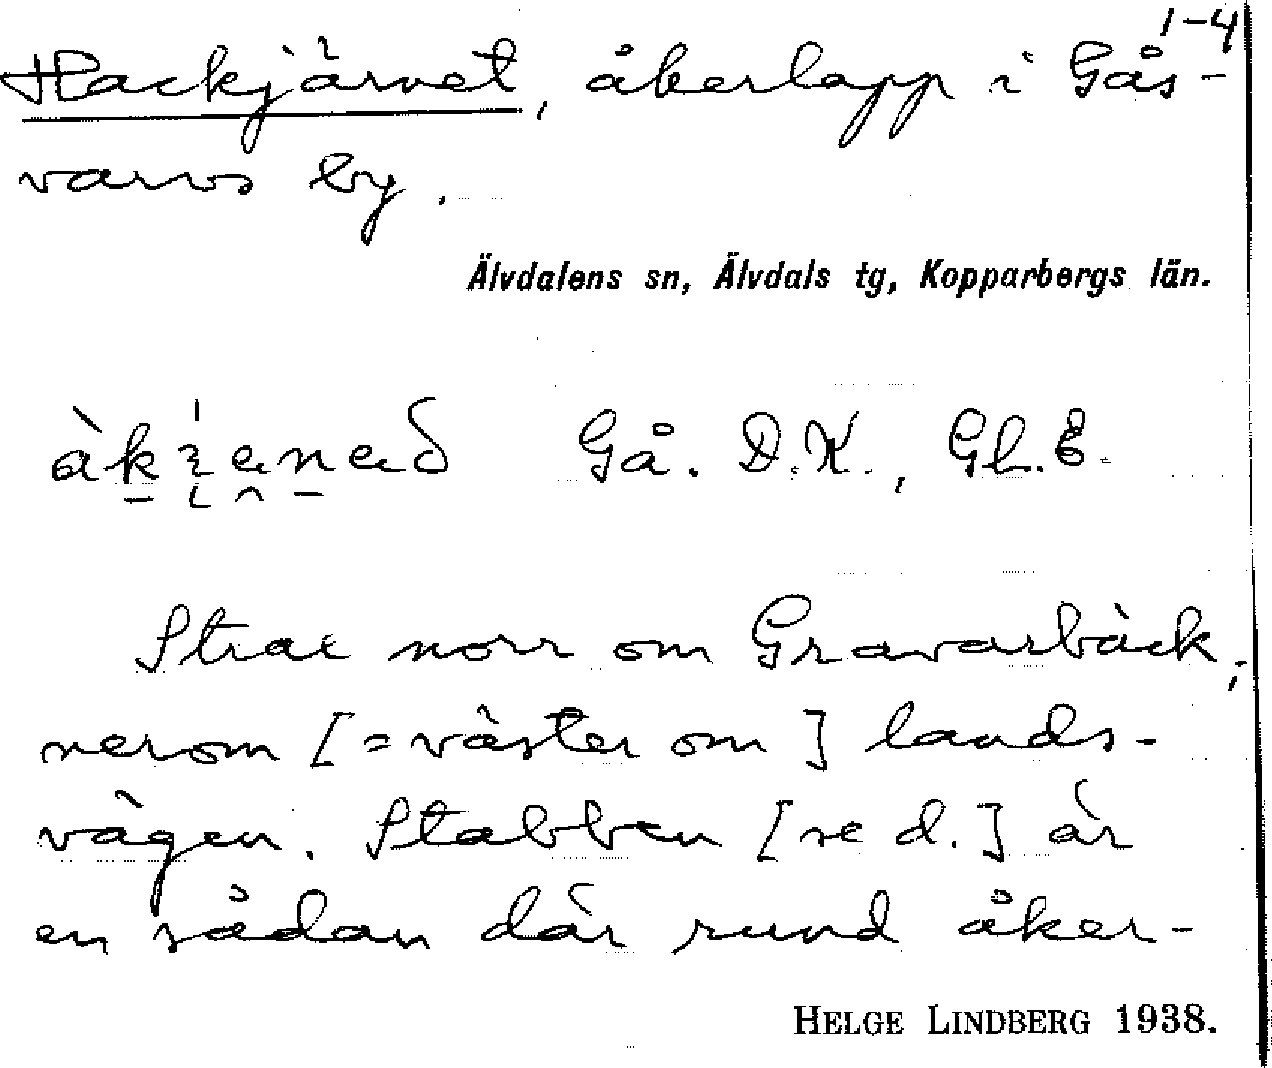 1-4
Hackjärnet, åkerlapp i Gås-
varvs by.
Älvdalens sn, Älvdals tg, Kopparbergs län.
Gå. D.K., Gl. E.
Strax norr om Gravarbäck,
nerom [= väster om] lands-
vägen. Stabben [se d.] är
en sådan där rund åker-
HELGE LINDBERG 1938.